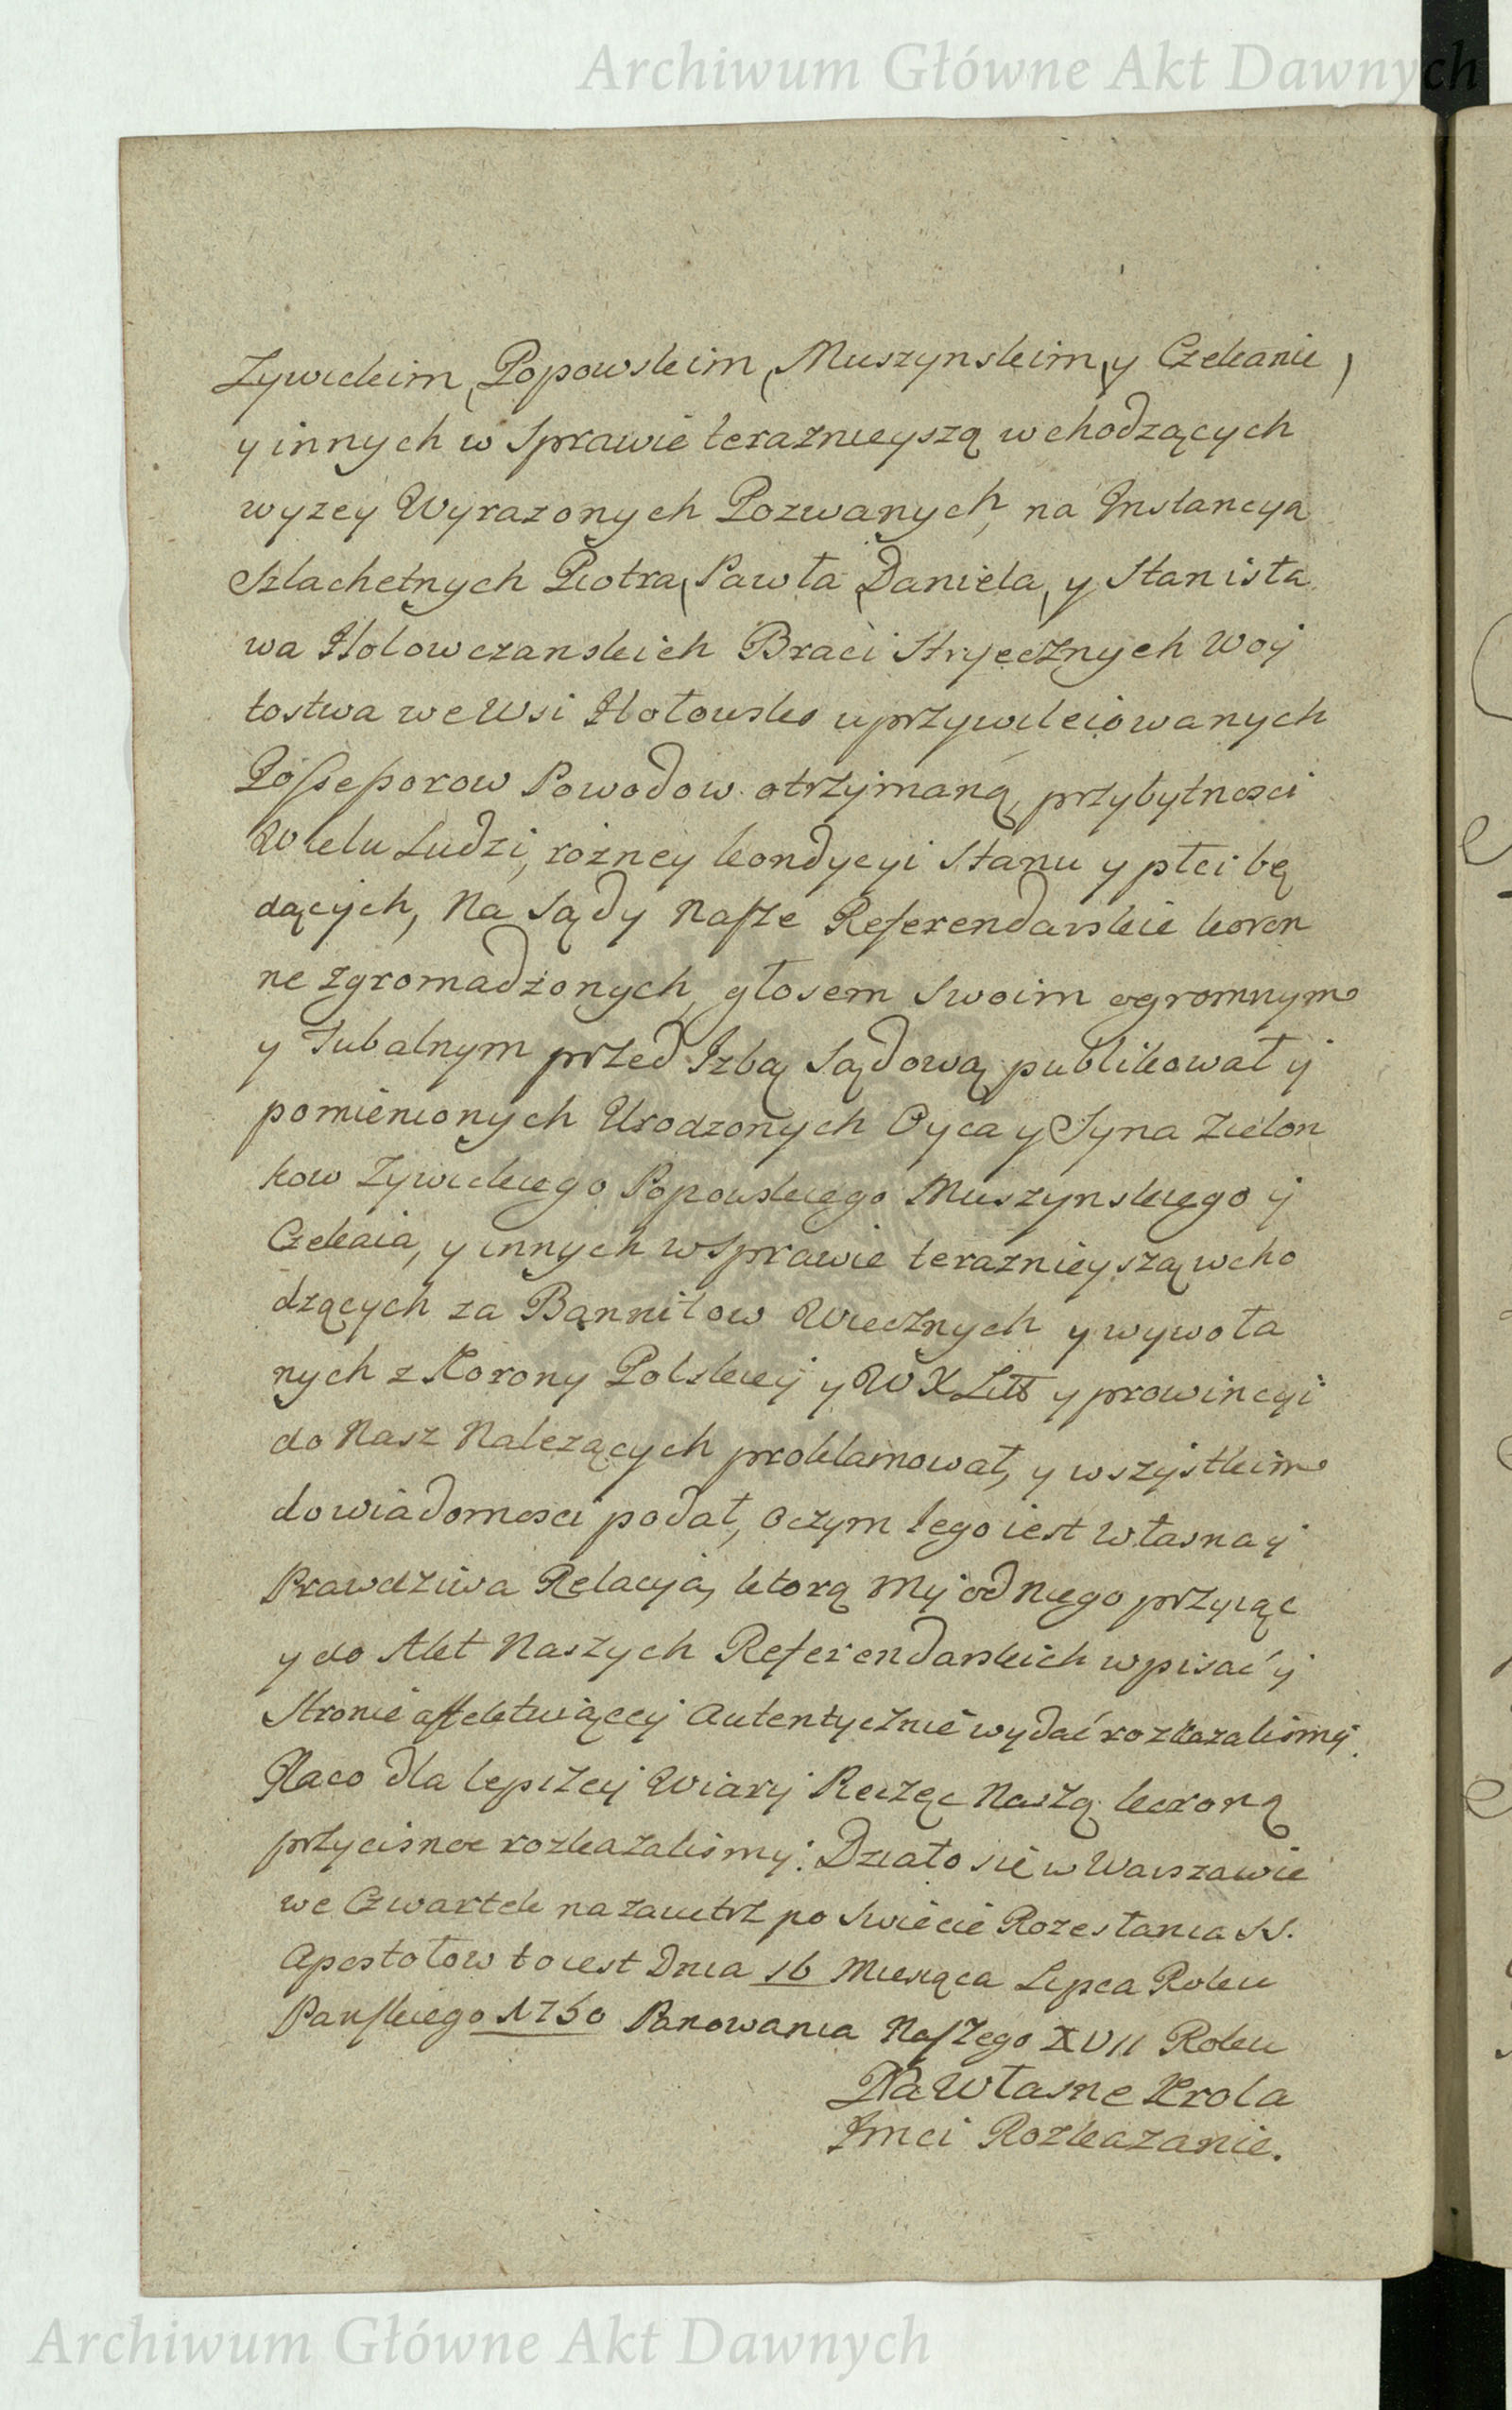 Archiwum Główne Akt Dawnych
Zywickim, Popowskim, Muszynskim, y Czekanie,
y innych w Sprawie teraznieyszą wchodzących
wyzey Wyrazonych Pozwanych, na Instancya
Szlachetnych Piotra, Pawła, Daniela, y Stanisła
wa Hołowczanskich Braci Stryecznych Woy
tostwa we Wsi Hołowsko uprzywileiowanych
Possessorow Powodow otrzymaną, przybytnosci
Wielu Ludzi, rożney kondycyi Stanu y płci bę
dących, Na Sądy Nasze Referendarskie koron
ne zgromadzonych, głosem swoim ogromnym
y Tubalnym przed Izbą Sądową publikował y
pomienionych Urodzonych Oyca y Syna Zielon
kow Zywickiego Popowskiego Muszynskiego y
Czekaia, y innych w Sprawie teraznieyszą wcho
dzących za Bannitow Wiecznych y wywoła
nych z Korony Polskiey y W X Litt y prowincyi
do Nasz Nalezących proklamował, y wszystkim
do wiadomosci podał, oczym tego iest Własna y
Prawdziwa Relacya, ktorą My od niego przyiąc
y do Akt Naszych Referendarskich wpisać y
Stronie affektuiącey Autentycznie wydać rozkazalismy.
Na co dla lepszey Wiary Pieczęc Naszą koroną
przycisnoc rozkazalismy. Działo się w Warszawie
we Czwartek nazaiutrz po Swiecie Rozesłania SS.
Apostołow to iest Dnia 16 Miesiąca Lipca Roku
Panskiego 1750 Panowania Naszego XVII Roku
Na Własne Krola
Jmci Rozkazanie.
Archiwum Główne Akt Dawnych